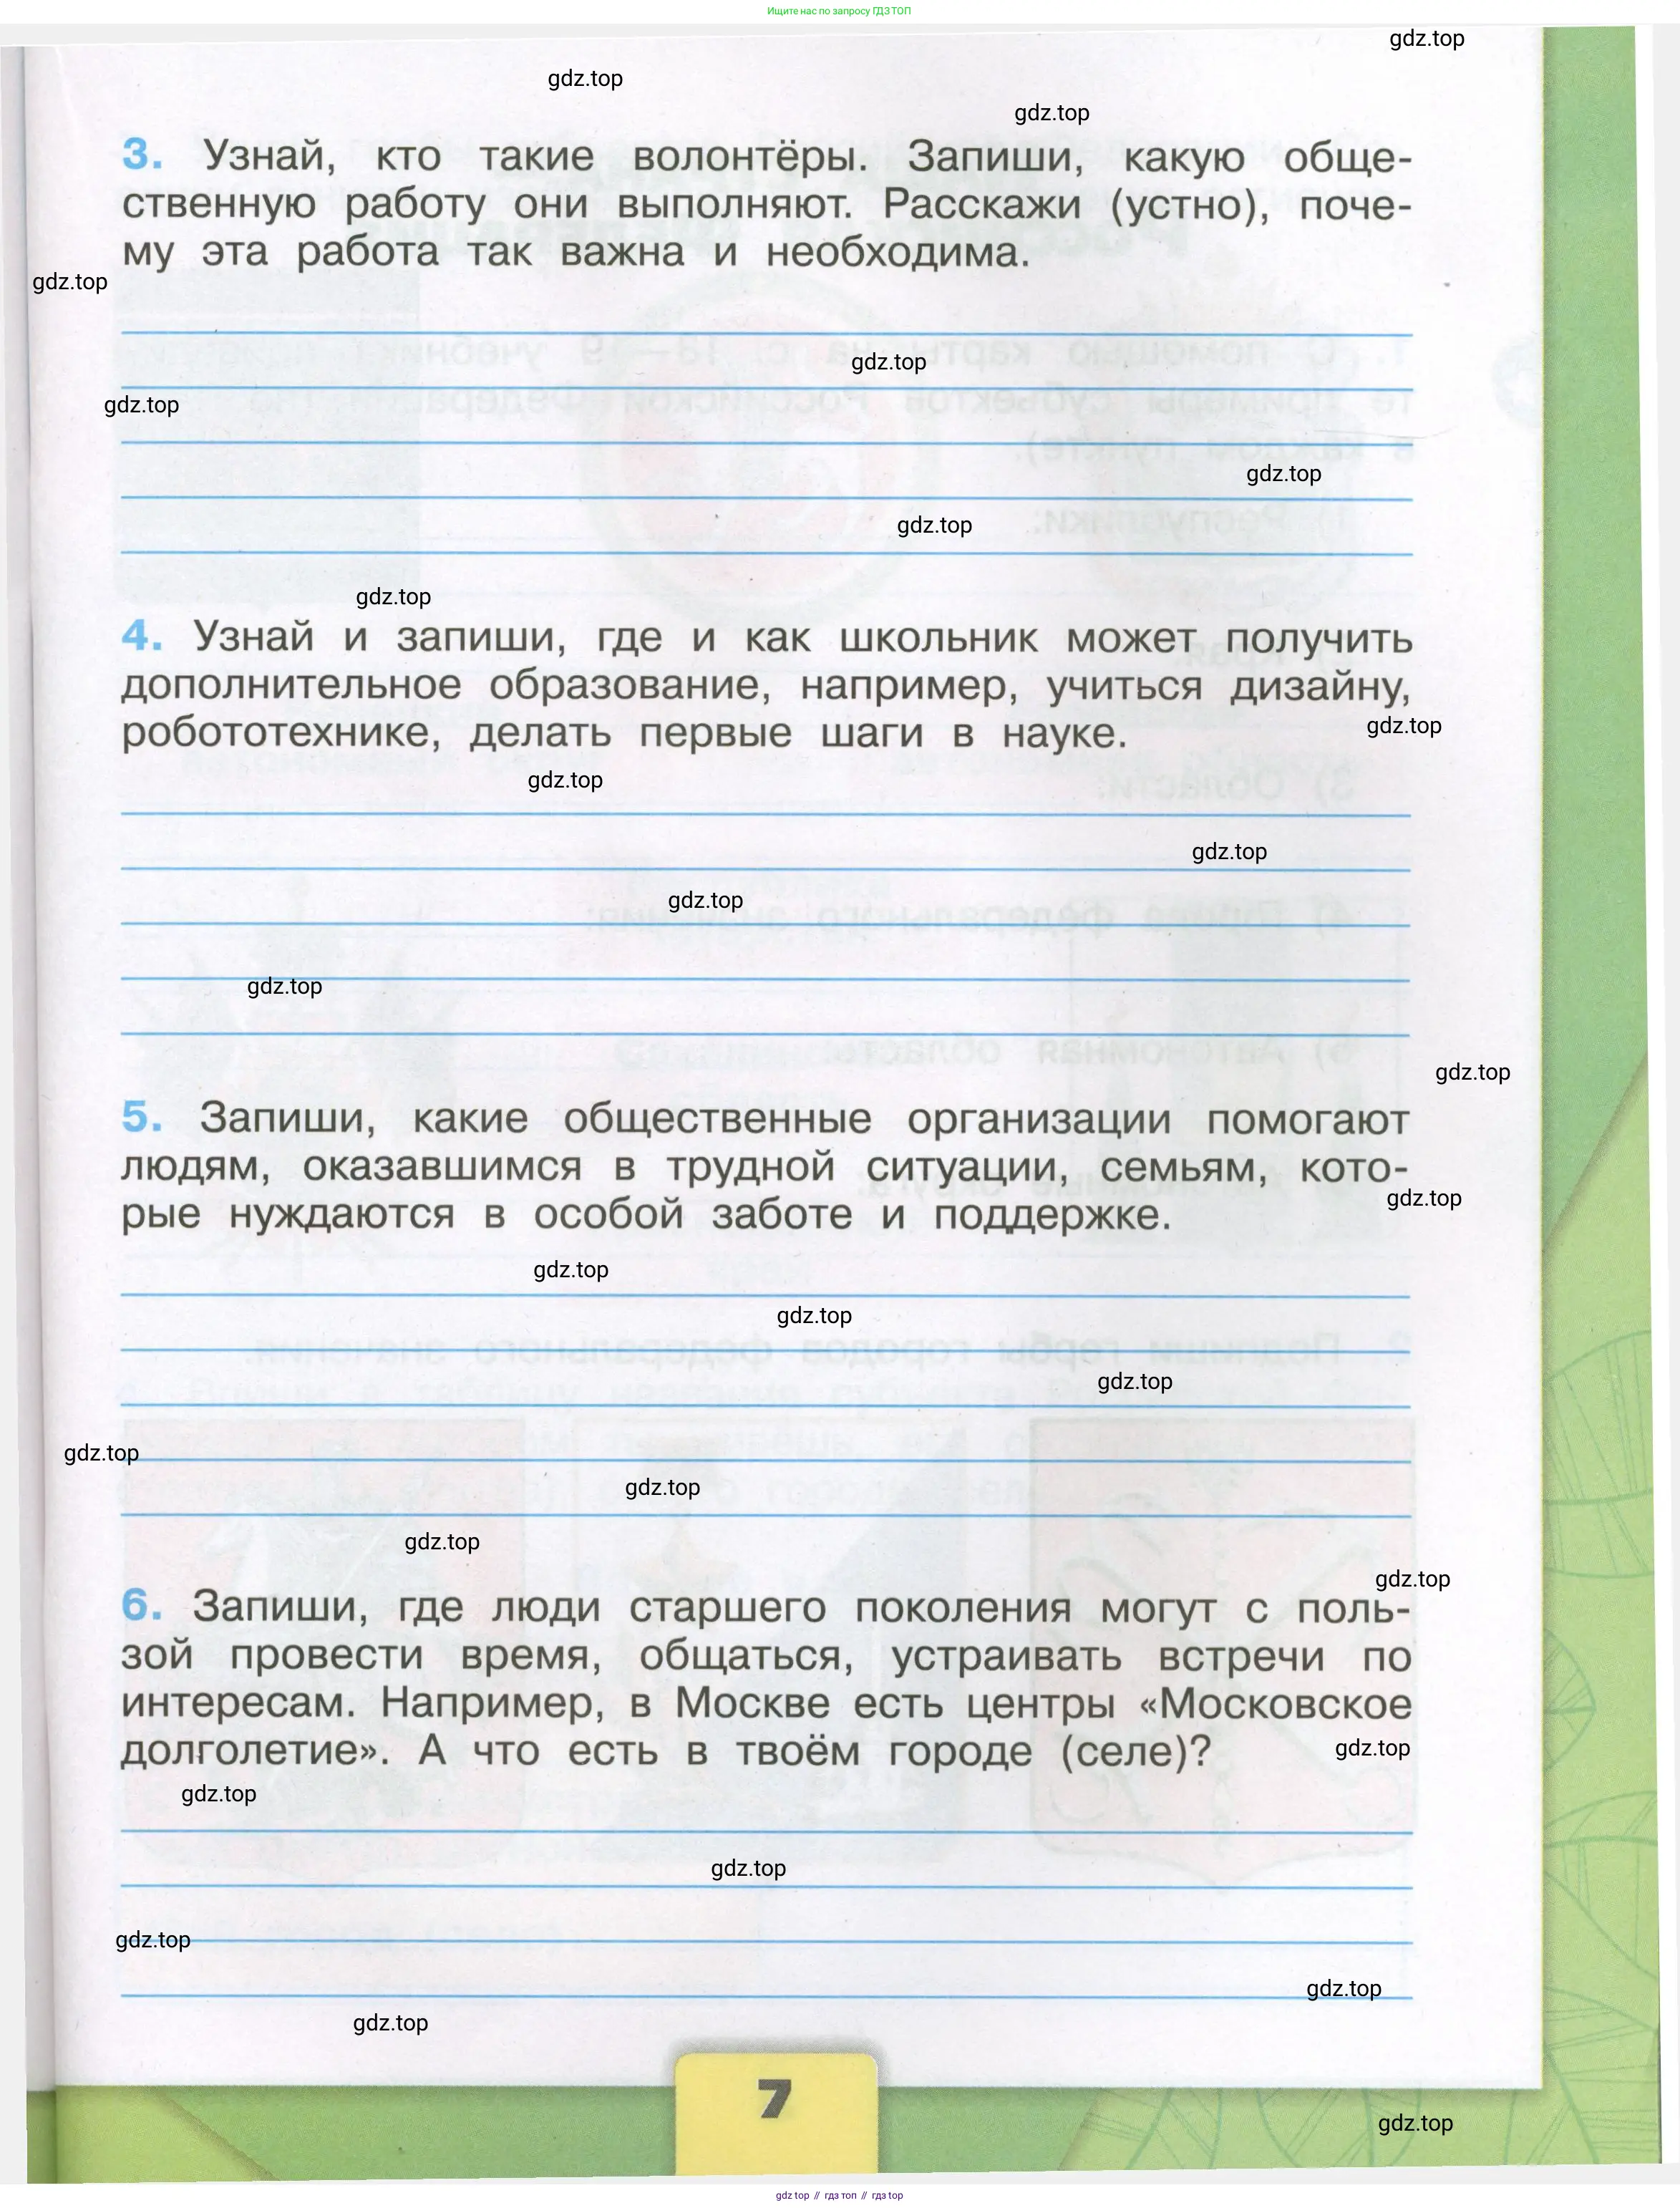 Ищите нас по запросу ГДЗ ТОП
gdz.top
gdz.top
gdz.top
3. Узнай, кто такие волонтёры. Запиши, какую обще-
ственную работу они выполняют. Расскажи (устно), поче-
му эта работа так важна и необходима.
gdz.top
gdz.top
gdz.top
gdz.top
gdz.top
gdz.top
4. Узнай и запиши, где и как школьник может получить
дополнительное образование, например, учиться дизайну,
робототехнике, делать первые шаги в науке.
gdz.top
gdz.top
gdz.top
gdz.top
gdz.top
gdz.top
5. Запиши, какие общественные организации помогают
людям, оказавшимся в трудной ситуации, семьям, кото-
рые нуждаются в особой заботе и поддержке.
gdz.top
gdz.top
gdz.top
gdz.top
gdz.top
gdz.top
gdz.top
gdz.top
6. Запиши, где люди старшего поколения могут с поль-
зой провести время, общаться, устраивать встречи по
интересам. Например, в Москве есть центры «Московское
долголетие». А что есть в твоём городе (селе)?
gdz.top
gdz.top
gdz.top
gdz.top
gdz.top
gdz.top
7
gdz.top
gdz top // гдз топ // гдз top